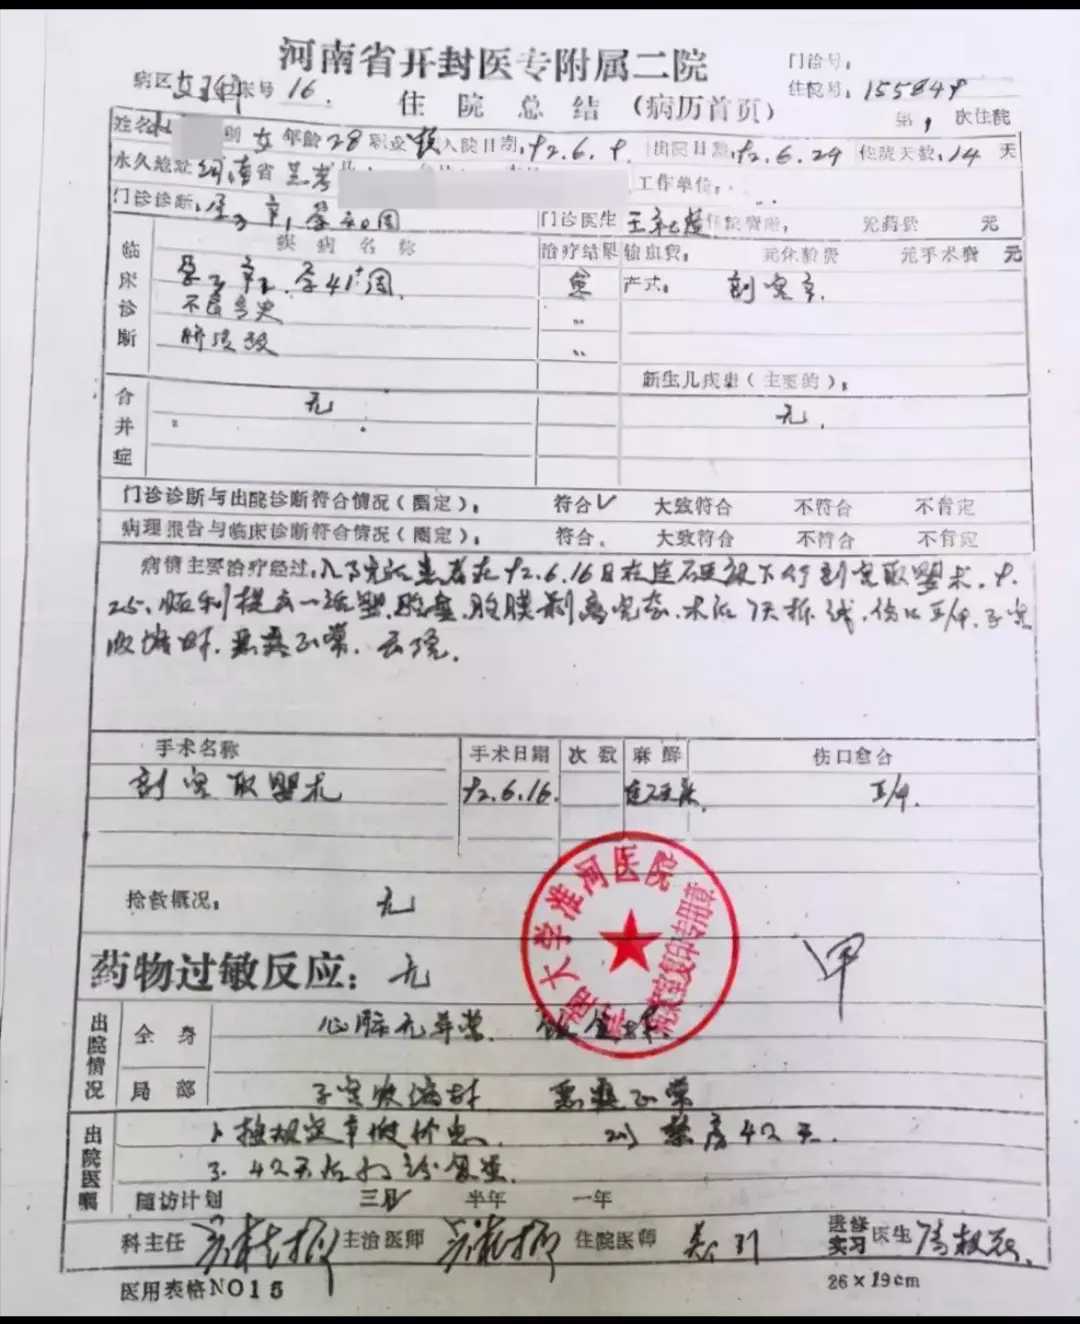 河南省开封医专附属二院
门诊号:
病区 妇产科 床号 16.
住院号: 155849
住院总结(病历首页)
第1次住院
姓名 别 女 年龄 28 职业 入院日期: 92.6.9. 出院日期: 92.6.29 住院天数: 14 天
永久地址 河南省兰考 工作单位:
门诊诊断: 孕3产1孕40周 门诊医生 王 住院费 元药费 元
临床诊断 疾病名称 治疗结果 输血费: 元休 费 元手术费 元
孕3产2.孕41⁺周 愈 产式: 剖宫产.
不良孕史 〃
脐 〃
新生儿疾患(主要的):
合并症 无 无.
门诊诊断与出院诊断符合情况(圈定): 符合✓ 大致符合 不符合 不肯定
病理报告与临床诊断符合情况(圈定): 符合. 大致符合 不符合 不肯定
病情主要治疗经过: 入院后患者在92.6.16日在连硬 下行剖宫取婴术. 9.
25. 顺利提出一活婴.胎盘.胎膜剥离完整.术后7天拆线.伤口II/甲.子宫
收缩好.恶露正常.出院.
手术名称 手术日期 次数 麻醉 伤口愈合
剖宫取婴术 92.6.16. 连硬 II/甲.
抢救概况: 无
大学淮河医院
病案室复印专用章
药物过敏反应: 无 甲
出院情况 全身 心肺无异常.
局部 子宫收缩好 恶露正常
出院医嘱 1. 按规定 2) 禁房42天.
3. 42天后门诊复查.
随访计划 三月 半年 一年
科主任 主治医师 住院医师 进修实习医生
医用表格NO15
26×19cm